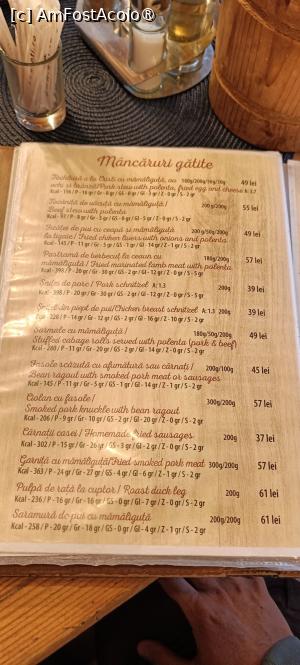 [c] AmFostAcolo®
Mâncăruri gătite
Tochitură a la Crasti cu mămăliguță, ou 100g/200g/50g/50g 49 lei
ochi si brânză/Pork stew with polenta, fried egg and cheese A: 3,7
Tocăniță de văcuță cu mămăliguță/ 200g/200g 55 lei
Beef stew with polenta
Ficăței de pui cu ceapă si mămăliguță 200g/50g/200g 49 lei
la tigaie/Fried chiken livers with onions and polenta
Kcal - 145 / P - 11 gr / Gr - 5 gr / GS - 1 gr / Gl - 14 gr / Z - 1 gr / S - 2 gr
Pastramă de berbecuț la ceaun cu 180g/200g 57 lei
mămăliguță/Fried marinated lamb meat with polenta
Kcal - 393 / P - 20 gr / Gr - 30 gr / GS - 2 gr / Gl - 12 gr / Z - 0 gr / S - 5 gr
Snițel de porc / Pork schnitzel A: 1,3 200g 39 lei
Kcal - 398 / P - 20 gr / Gr - 30 gr / GS - 2 gr / Gl - 12 gr / Z - 0 gr / S - 2 gr
Snițel din piept de pui/Chicken breast schnitzel A: 1,3 200g 39 lei
Kcal - 228 / P - 14 gr / Gr - 12 gr / GS - 2 gr / Gl - 16 gr / Z - 10 gr / S - 2 gr
Sarmale cu mămăliguță/ 180g/50g/200g 49 lei
Stuffed cabage rolls served with polenta (pork & beef)
Kcal - 280 / P - 11 gr / Gr - 20 gr / GS - 2 gr / Gl - 14 gr / Z - 0 gr / S - 2 gr
Fasole scăzută cu afumătură sau cârnați / 200g/100g 45 lei
Bean ragout with smoked pork meat or sausages
Kcal - 145 / P - 11 gr / Gr - 5 gr / GS - 1 gr / Gl - 14 gr / Z - 1 gr / S - 2 gr
Ciolan cu fasole/ 300g/200g 57 lei
Smoked pork knuckle with bean ragout
Kcal - 206 / P - 9 gr / Gr - 10 gr / GS - 2 gr / Gl - 20 gr / Z - 0 gr / S - 2 gr
Cârnații casei / Homemade fried sausages 200g 37 lei
Kcal - 302 / P - 15 gr / Gr - 26 gr / GS - 3 gr / Gl - 2 gr / Z - 0 gr / S - 2 gr
Garniță cu mămăliguță/Fried smoked pork meat 300g/200g 57 lei
Kcal - 363 / P - 24 gr / Gr - 27 gr / GS - 4 gr / Gl - 6 gr / Z - 1 gr / S - 7 gr
Pulpă de rață la cuptor / Roast duck leg 200g 61 lei
Kcal - 236 / P - 16 gr / Gr - 16 gr / GS - 0 gr / Gl - 7 gr / Z - 0 gr / S - 2 gr
Saramură de pui cu mămăliguță 200g/200g 61 lei
Kcal - 258 / P - 20 gr / Gr - 18 gr / GS - 0 gr / Gl - 4 gr / Z - 1 gr / S - 2 gr